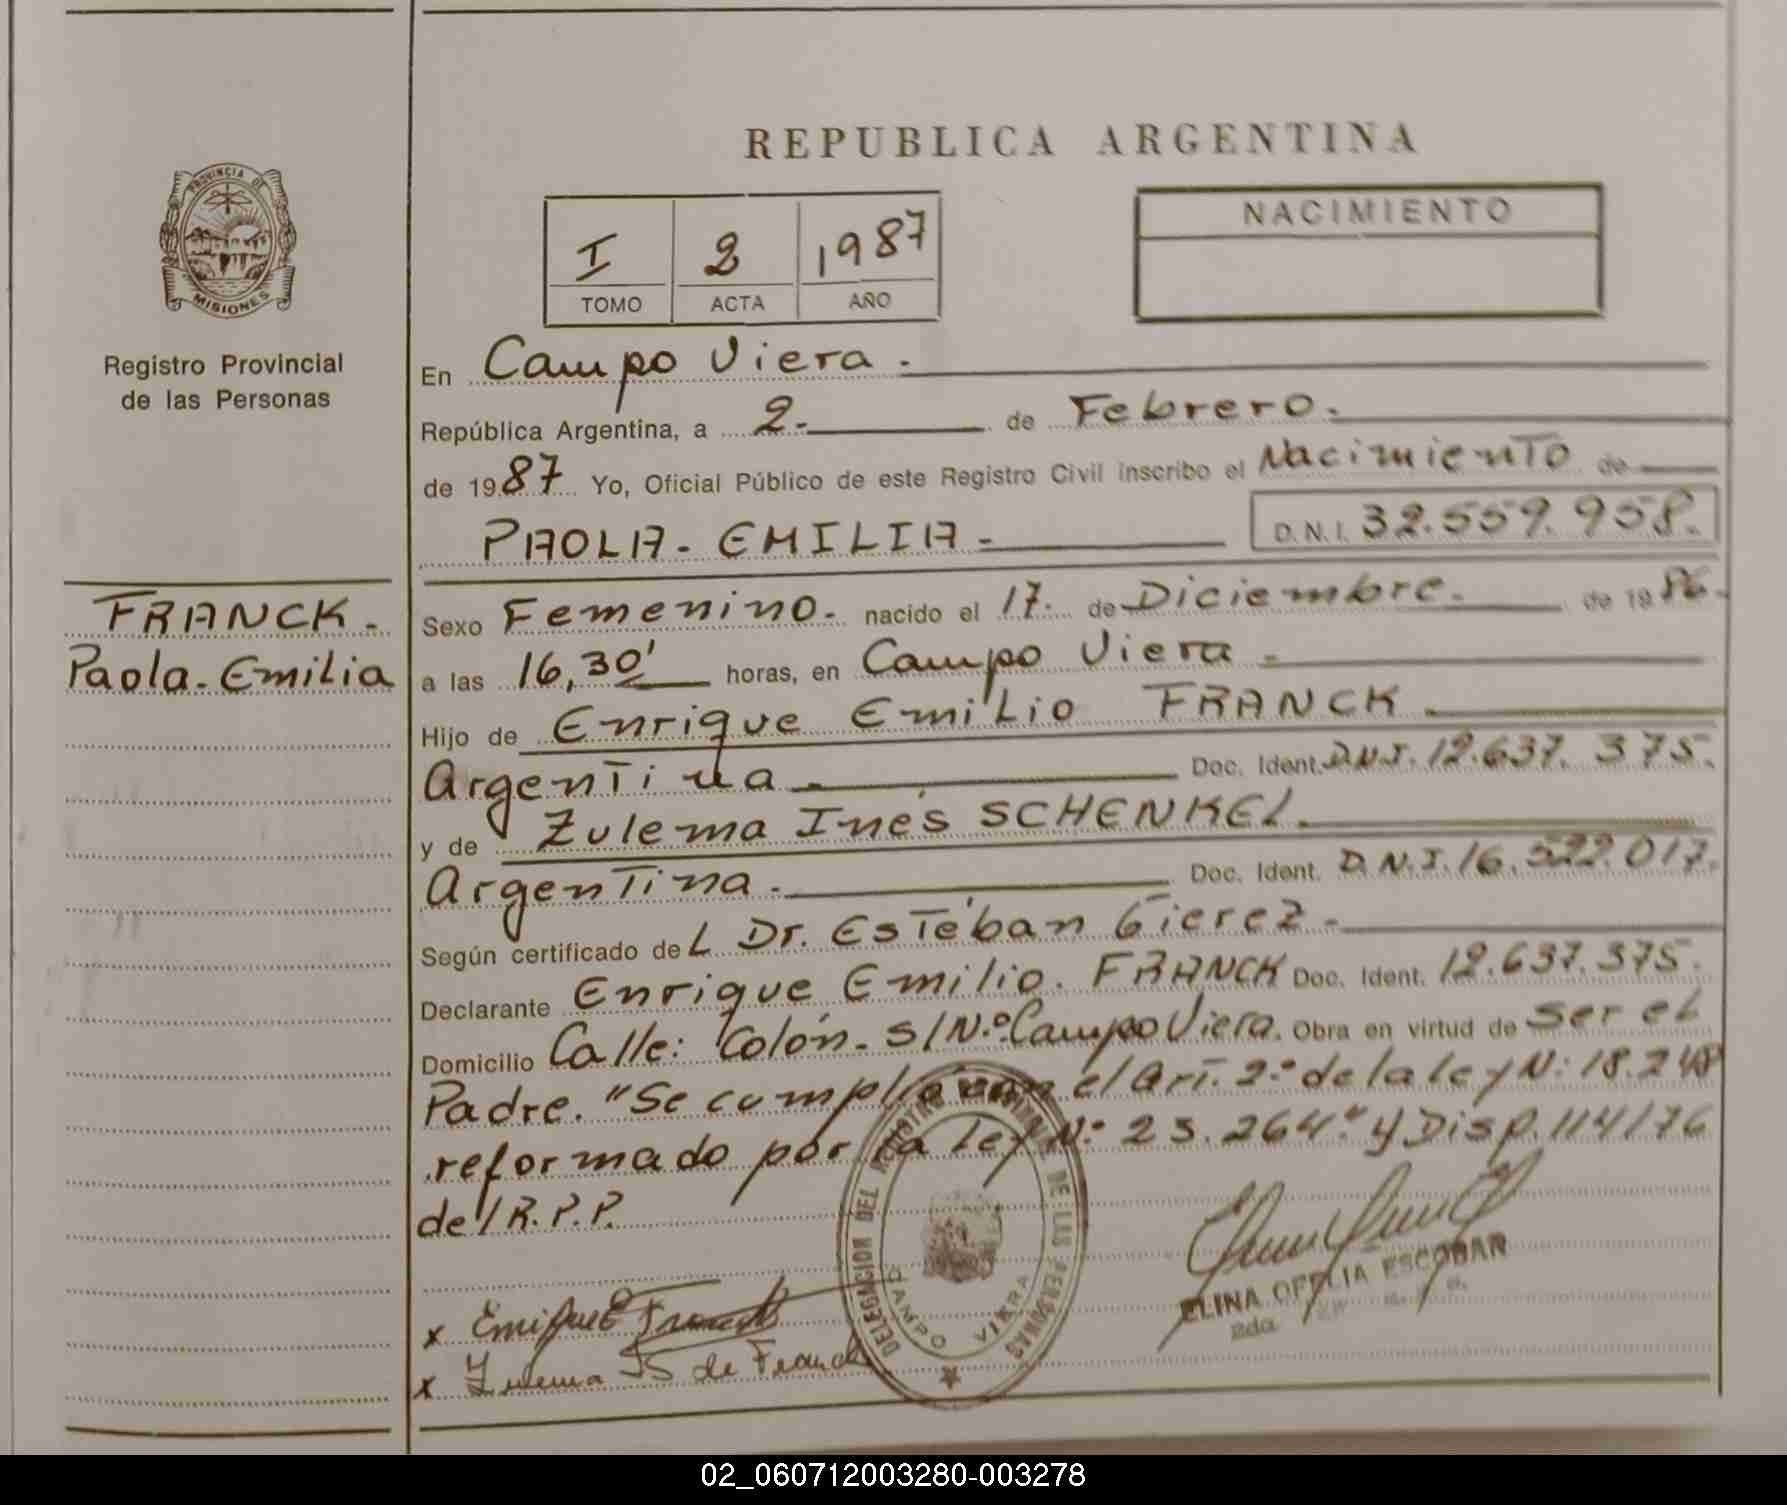 REPUBLICA ARGENTINA
PROVINCIA DE
MISIONES
Registro Provincial
de las Personas
I 2 1987
TOMO ACTA AÑO
NACIMIENTO
En Campo Viera.
República Argentina, a 2.- de Febrero.
de 1987 Yo, Oficial Público de este Registro Civil inscribo el Nacimiento de
PAOLA - EMILIA - D.N.I. 32.559.958.
FRANCK.
Paola - Emilia
Sexo Femenino. nacido el 17. de Diciembre. de 1986.
a las 16,30' horas, en Campo Viera -
Hijo de Enrique Emilio FRANCK
Argentina Doc. Ident. D.N.I. 12.637.375.
y de Zulema Inés SCHENKEL.
Argentina. Doc. Ident. D.N.I. 16.522.017.
Según certificado del Dr. Estéban Gierez -
Declarante Enrique Emilio. FRANCK Doc. Ident. 12.637.375.
Domicilio Calle: Colón - S/N.º Campo Viera. Obra en virtud de ser el
Padre. "Se cumplió con el Art. 2º de la ley N: 18.248
reformado por la ley N.º 23.264" y Disp. 114/76
del R.P.P.
DELEGACION DEL REGISTRO PROVINCIAL DE LAS PERSONAS
CAMPO VIERA
ELINA OFELIA ESCOBAR
x Enrique Franck
x Zulema IS de Franck
02_060712003280-003278